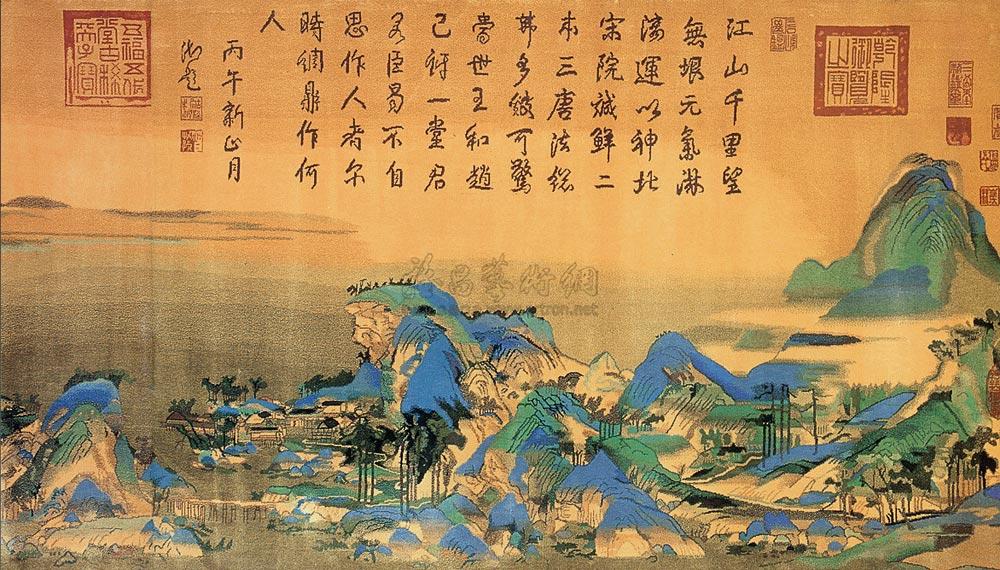 江山千里望
無垠元氣淋
漓運以神北
宋院誠鮮二
本三唐法總
弗多皴可驚
當世王和趙
已訝一堂君
若臣曷不自
思作人者尔
時調鼎作何
人
丙午新正月
御題
乾隆御覽之寶
五福五代堂古稀天子寶
雅昌藝術網